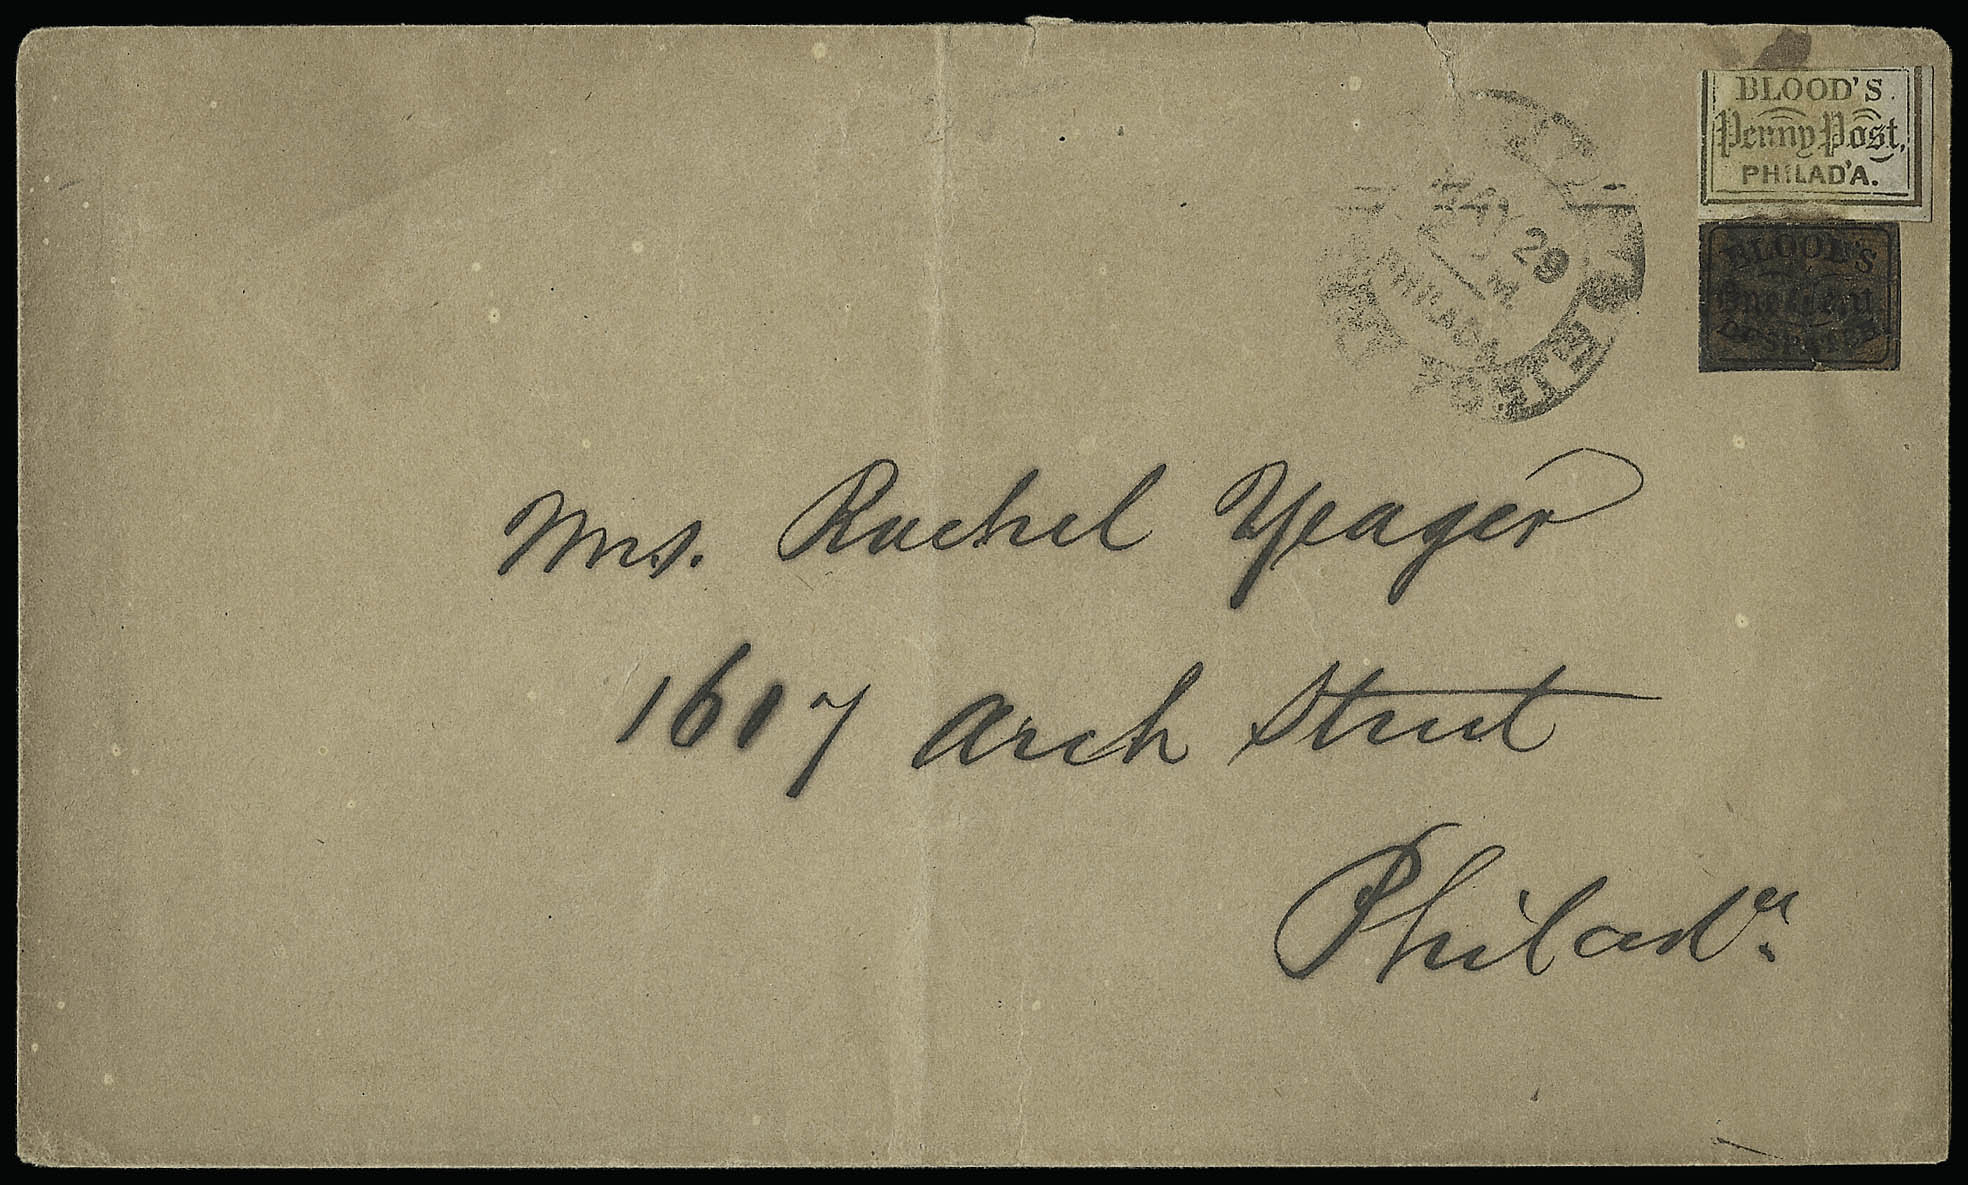 BLOOD'S
Penny Post,
PHILAD'A.
BLOOD'S
One Cent
DESPATCH
MAY 29
M
PHILADA
Mrs. Rachel Yeager
1617 Arch Street
Philada.